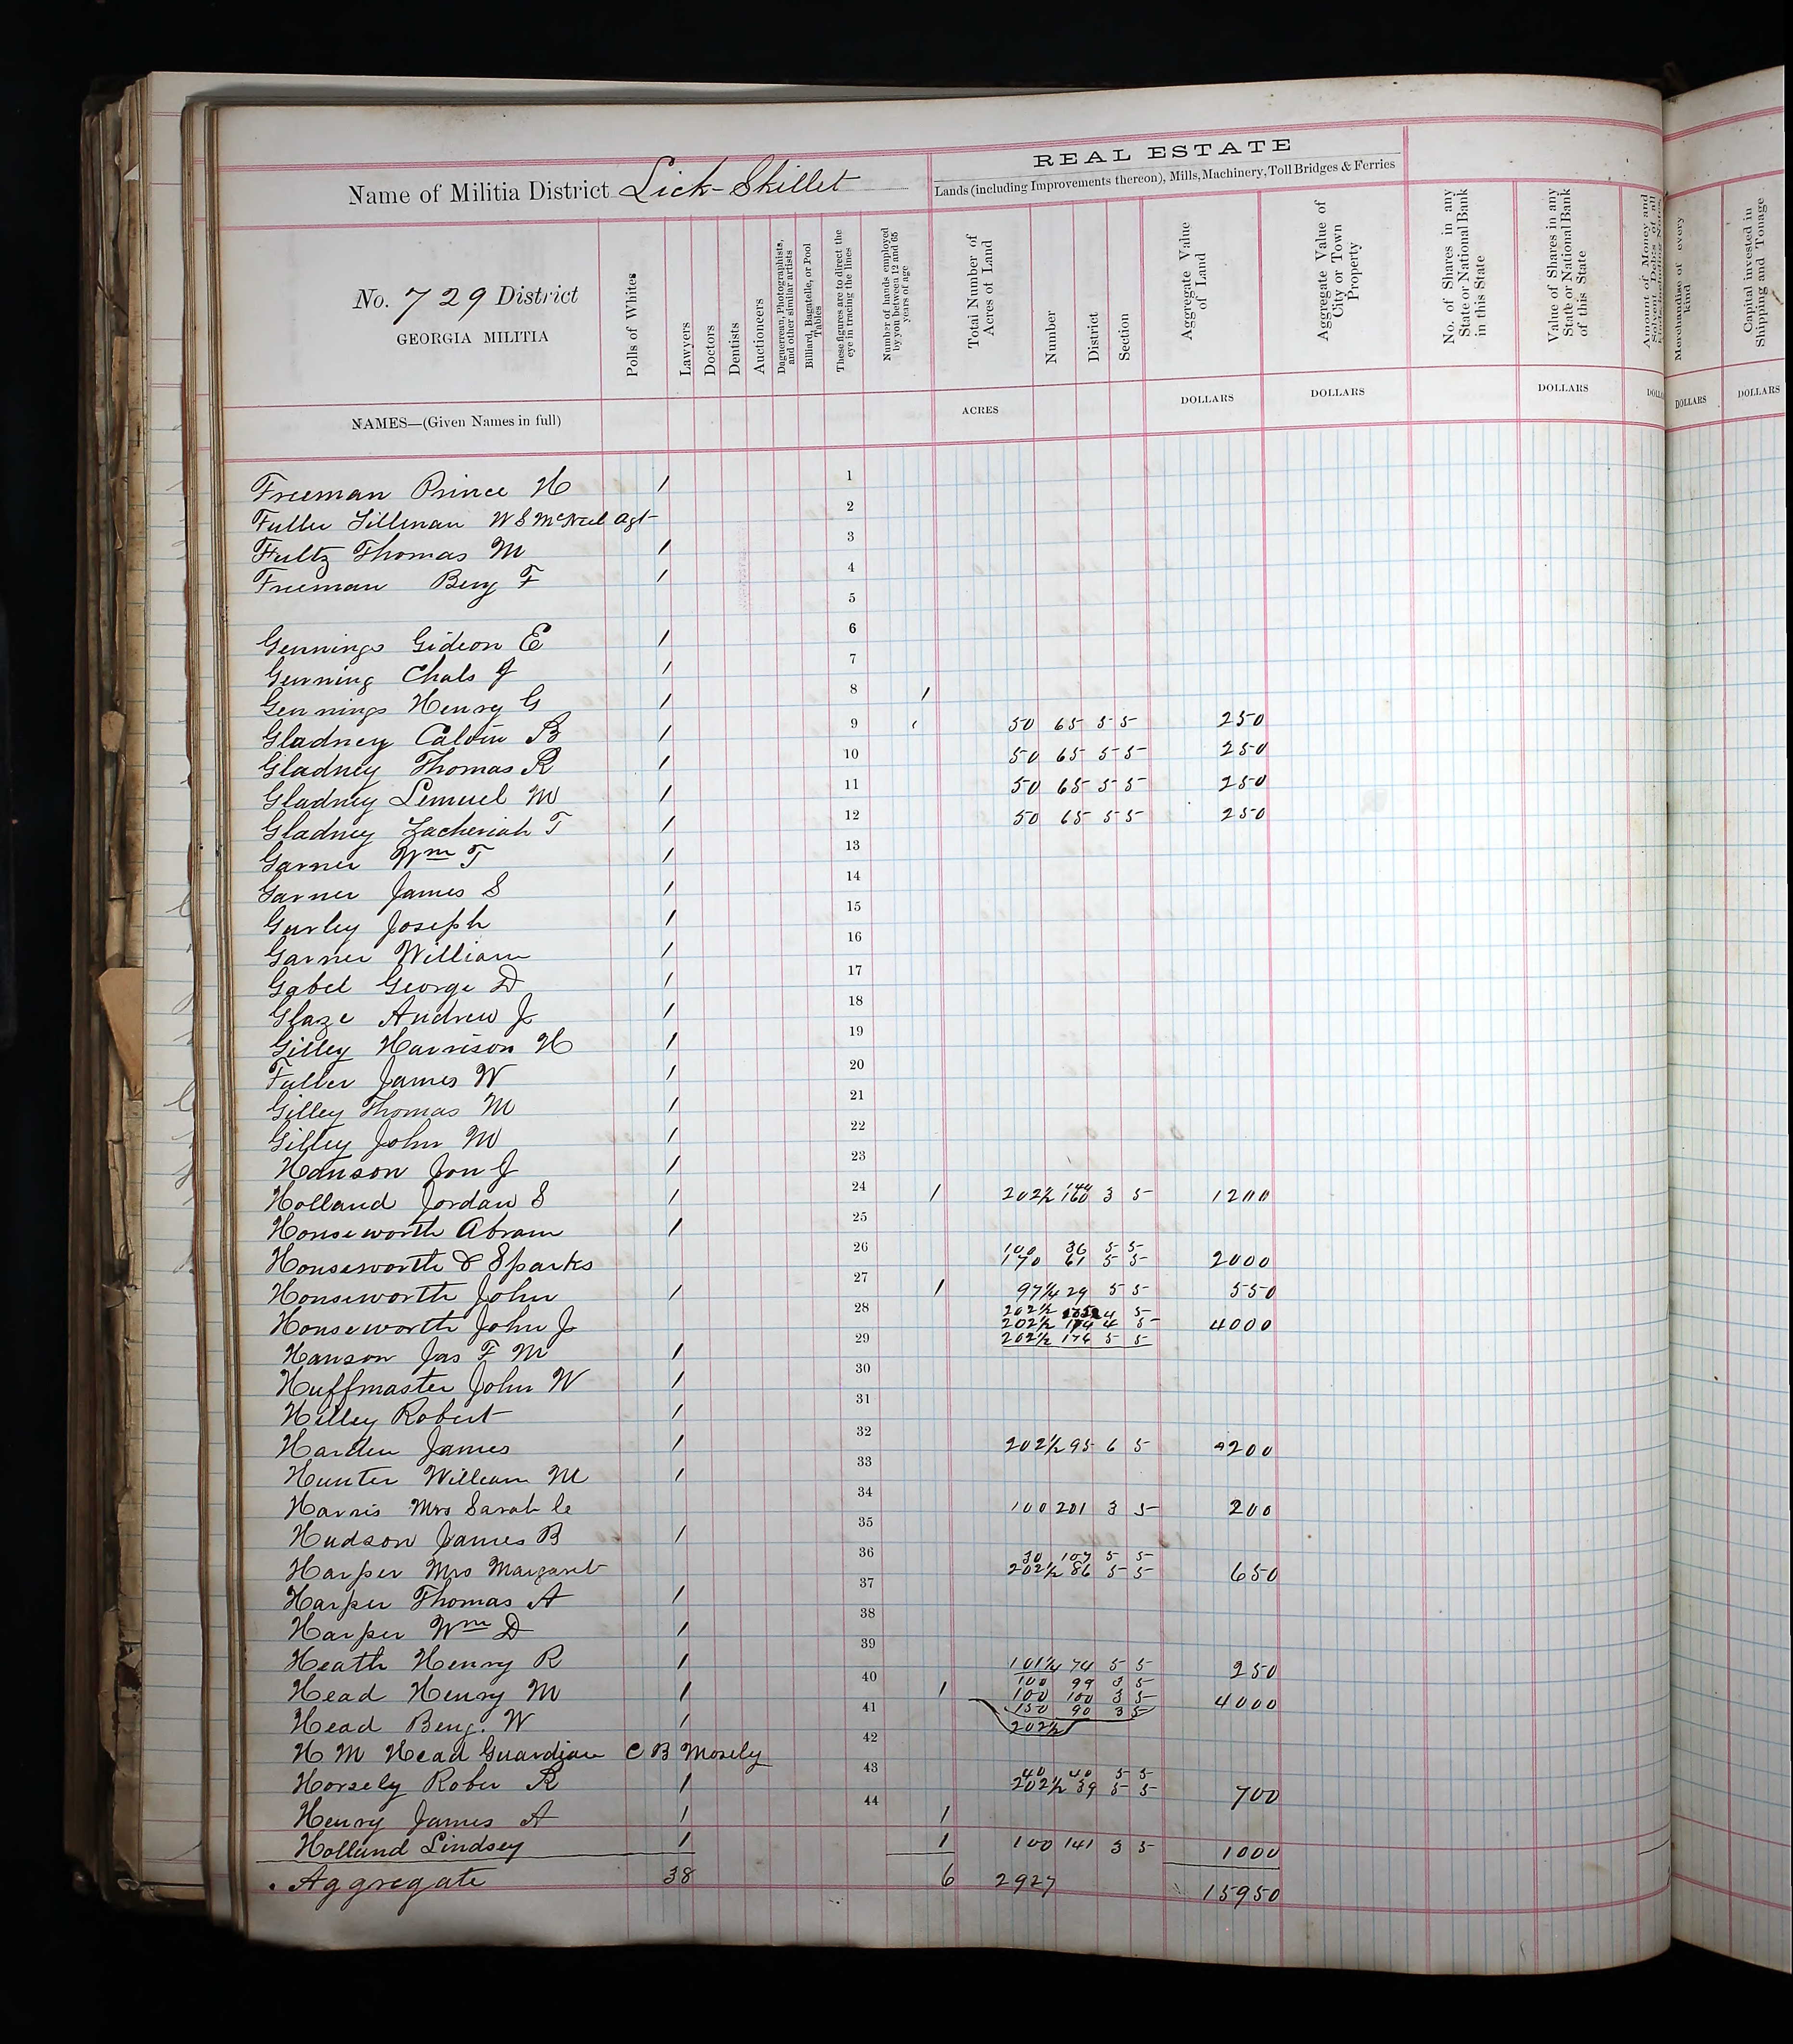 REAL ESTATE
Name of Militia District Lick-Skillet
Lands (including Improvements thereon), Mills, Machinery, Toll Bridges & Ferries
No. 729 District
GEORGIA MILITIA
NAMES—(Given Names in full)
Polls of Whites
Lawyers
Doctors
Dentists
Auctioneers
Daguerrean, Photographists, and other similar artists
Billiard, Bagatelle, or Pool Tables
These figures are to direct the eye in tracing the lines
Number of hands employed by you between 12 and 65 years of age
Total Number of Acres of Land
ACRES
Number
District
Section
Aggregate Value of Land
DOLLARS
Aggregate Value of City or Town Property
DOLLARS
No. of Shares in any State or National Bank in this State
Value of Shares in any State or National Bank of this State
DOLLARS
Amount of Money and Solvent Debts of all
Merchandise of every kind
DOLLARS
Capital invested in Shipping and Tonage
DOLLARS
Freeman Prince H / 1
Fuller Tillman W S McNeel Agt 2
Fultz Thomas M / 3
Freeman Benj F / 4
5
Gennings Gideon E / 6
Genning Chals J / 7
Gennings Henry G / 8 /
Gladney Calvin B / 9 50 65 5 5 250
Gladney Thomas R / 10 50 65 5 5 250
Gladney Lemuel M / 11 50 65 5 5 250
Gladney Zacheriah T / 12 50 65 5 5 250
Garner Wm T / 13
Garner James S / 14
Gurley Joseph / 15
Garner William / 16
Gabel George D / 17
Glaze Andrew J / 18
Gilley Harrison H / 19
Fuller James W / 20
Gilley Thomas M / 21
Gilley John M / 22
Hanson Jon J / 23
Holland Jordan S / 24 / 202½ 144 160 3 5 1200
Honseworth Abram / 25
Honseworth & Sparks 26 100 36 5 5
170 61 5 5 2000
Honseworth John / 27 / 97¼ 29 5 5 550
Honseworth John J 28 202½ 4 5
202½ 174 4 5 4000
202½ 176 5 5
Hanson Jas F M / 29
Huffmaster John W / 30
Hilley Robert / 31
Harden James / 32 202½ 95 6 5 200
Hunter William M / 33
Harris Mrs Sarah C 34 100 201 3 5 200
Hudson James B / 35
Harper Mrs Margaret 36 30 107 5 5
202½ 86 5 5 650
Harper Thomas A / 37
Harper Wm D / 38
Heath Henry R / 39 101¼ 74 5 5 250
Head Henry M / 40 / 100 99 3 5
100 100 3 5 4000
150 90 3 5
202½
Head Benj. W / 41
H M Head Guardian C B Mosely 42
Horsely Rober R / 43 40 40 5 5
202½ 39 5 5 700
Henry James A / 44 1
Holland Lindsey / 1 100 141 3 5 1000
Aggregate 38 6 2927 15950